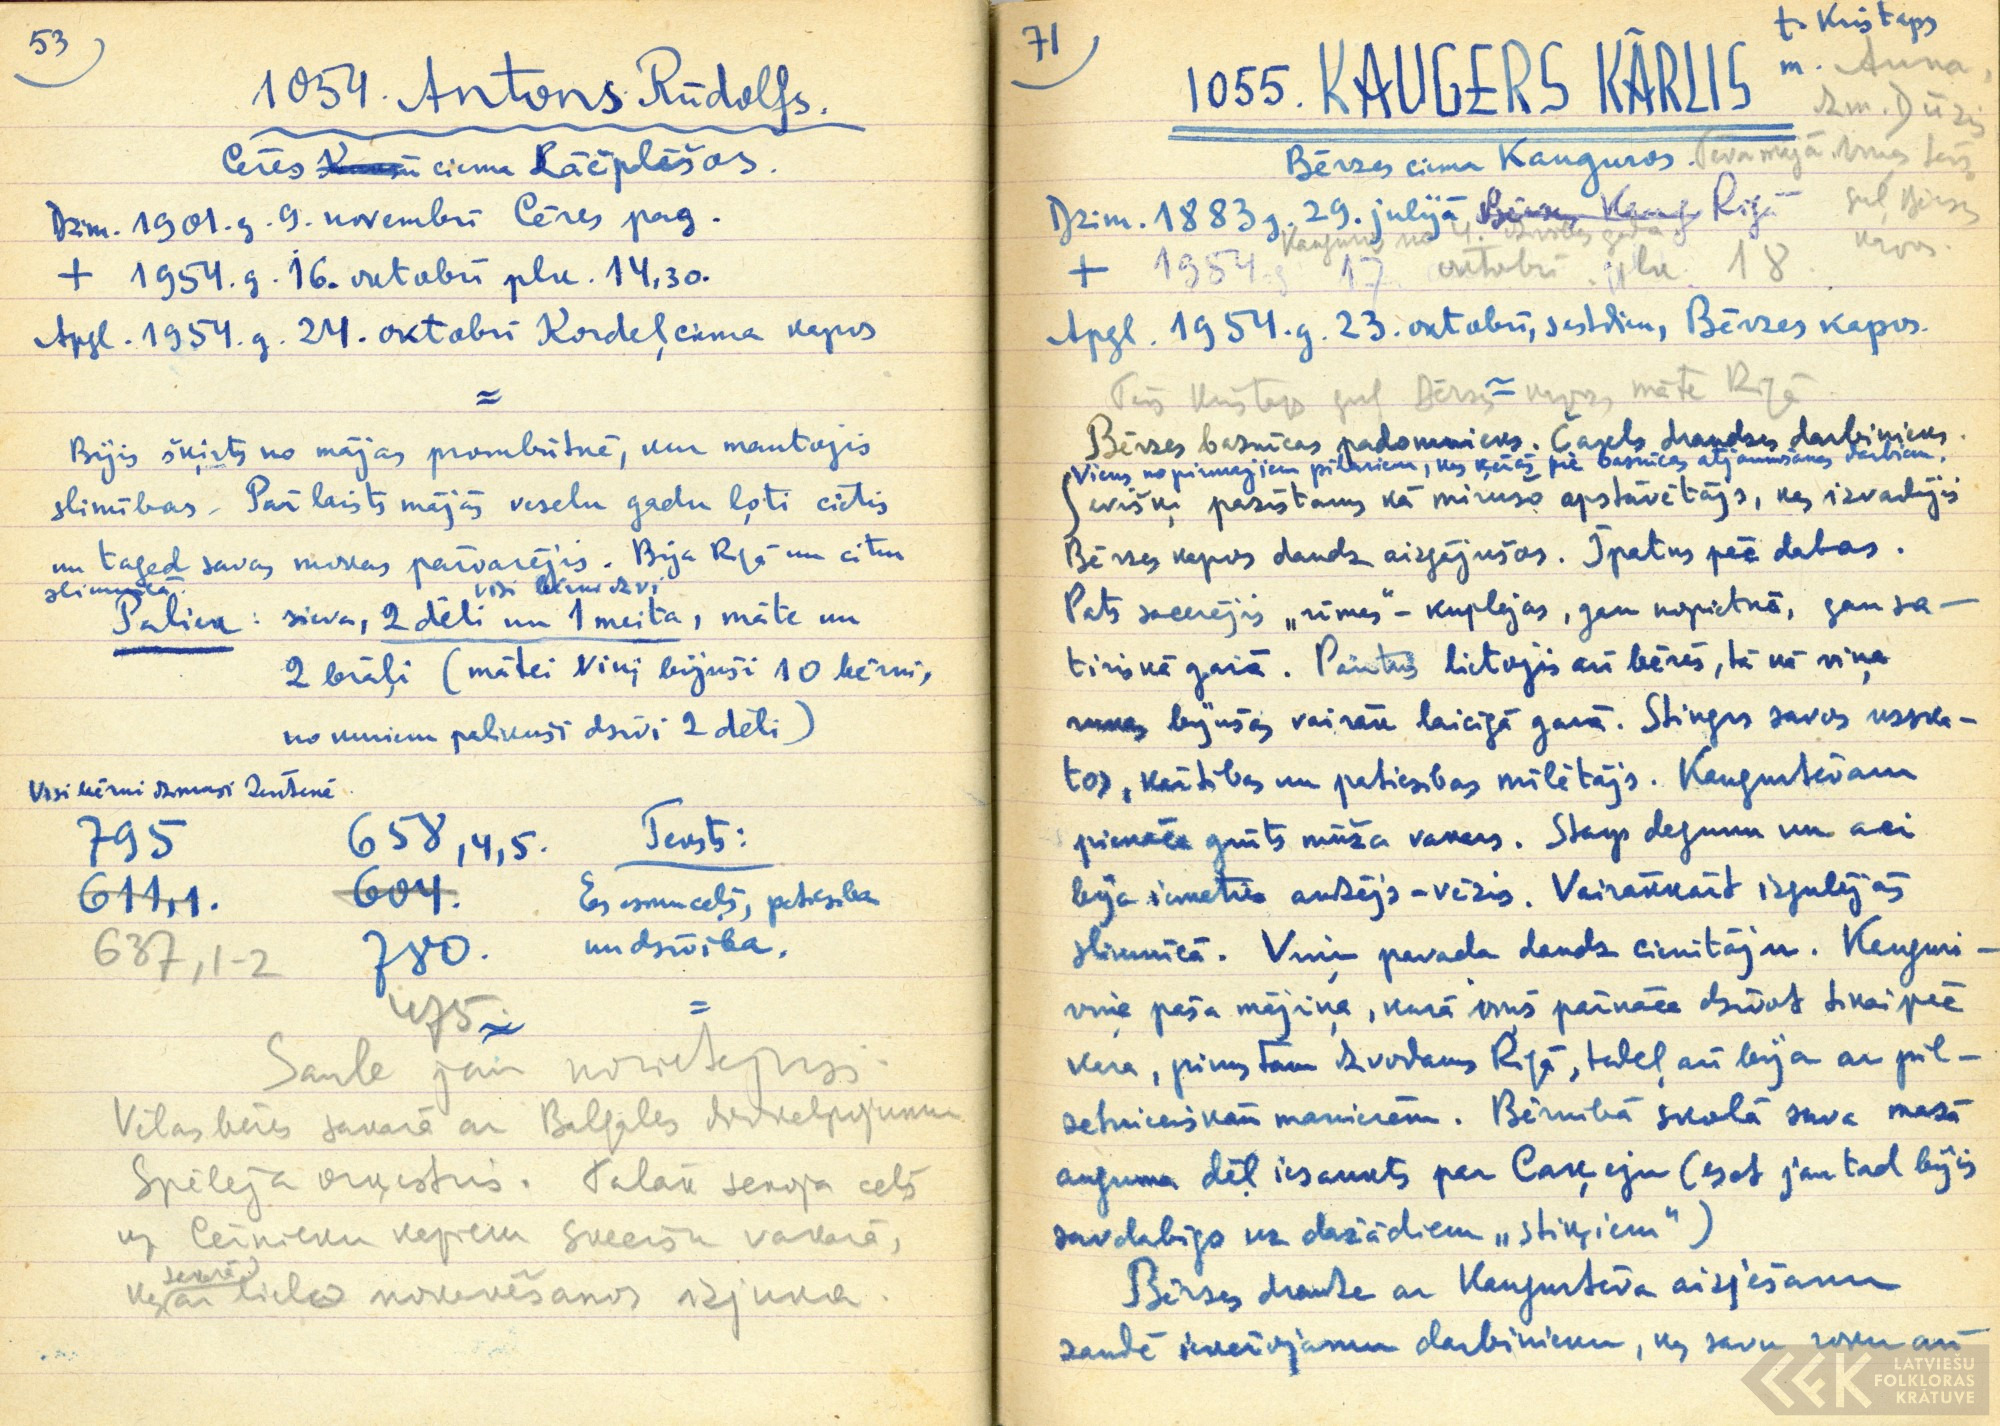 53
1054. Antons Rūdolfs.
Cēres ciema Lāčplēšos.
Dzim. 1901. g. 9. novembrī Cēres pag.
+ 1954. g. 16. oktobrī plk. 14,30.
Apgl. 1954. g. 24. oktobrī Kordeļciema kapos
≈
Bijis šķirts no mājas prombūtnē, kur mantojis
slimības. Pārlaists mājās veselu gadu ļoti cietis
un tagad savas mokas pārvarējis. Bija Rīgā un citu
slimnīcā.
visi bērni dzīvi
Paliek: sieva, 2 dēli un 1 meita, māte un
2 brāļi (mātei viņi bijuši 10 bērni,
no kuriem palikuši dzīvi 2 dēli)
Visi bērni dzimuši Zentenē.
795 658,4,5. Teksts:
611,1. 604. Es esmu ceļš, patiesība
637,1-2 780. un dzīvība.
475. =
≈
Saule jau norietējusi.
Vēlas bēres sakarā ar Balgales dievkalpojumu
Spēlēja orķestris. Tālāk sekoja ceļš
uz Cērnieku kapiem vakarā,
kas sakarā ar lielo nokavēšanos izjuka.
71
t. Kristaps
m. Anna,
dzim. Dūzis
1055. KAUGERS KĀRLIS
Bērzes ciema Kauguros. Tēva mājā.
guļ Bērzes
kapos.
Dzim. 1883 g. 29. jūlijā Rīgā
Kauguros no 4. dzīvības gada
+ 1954. g. 17. oktobrī plk. 18.
Apgl. 1954. g. 23. oktobrī, sestdien, Bērzes kapos.
≈
Tēvs Kristaps guļ Bērzes kapos, māte Rīgā
Bērzes baznīcas padomnieks. Čakls draudzes darbinieks.
Viens no pirmajiem pīlāriem, kas ķērās pie baznīcas atjaunošanas darbiem.
Sevišķi pazīstams kā mirušo apstāvētājs, kas izvadījis
Bērzes kapos daudz aizgājušos. Īpatus pēc dabas.
Pats sacerējis „rīmes“ - kuplejas, gan nopietnā, gan sa-
tiriskā garā. Pantus lietojis arī bērēs, tā kā viņa
runas bijušas vairāk laicīgā garā. Stingrs savos uzska-
tos, kārtības un patiesības mīlētājs. Kaugurtēvam
pienāca grūts mūža vakars. Starp degunu un aci
bija iemeties audzējs - vēzis. Vairākkārt izgulējās
slimnīcā. Viņu pavada daudz cienītāju. Kauguri -
viņa paša mājiņa, kurā viņš pārnāca dzīvot tikai pēc
kara, pirms tam dzīvodams Rīgā, tādēļ arī bija ar pil-
sētnieciskām manierēm. Bērnībā skolā sava mazā
auguma dēļ iesaukts par Caķeju (esot jau tad bijis
savdabīgs uz dažādiem „stiķiem“)
Bērzes draudze ar Kaugurtēva aiziešanu
zaudē ievērojamu darbinieku, kas savu roku arī
LATVIEŠU
FOLKLORAS
KRĀTUVE